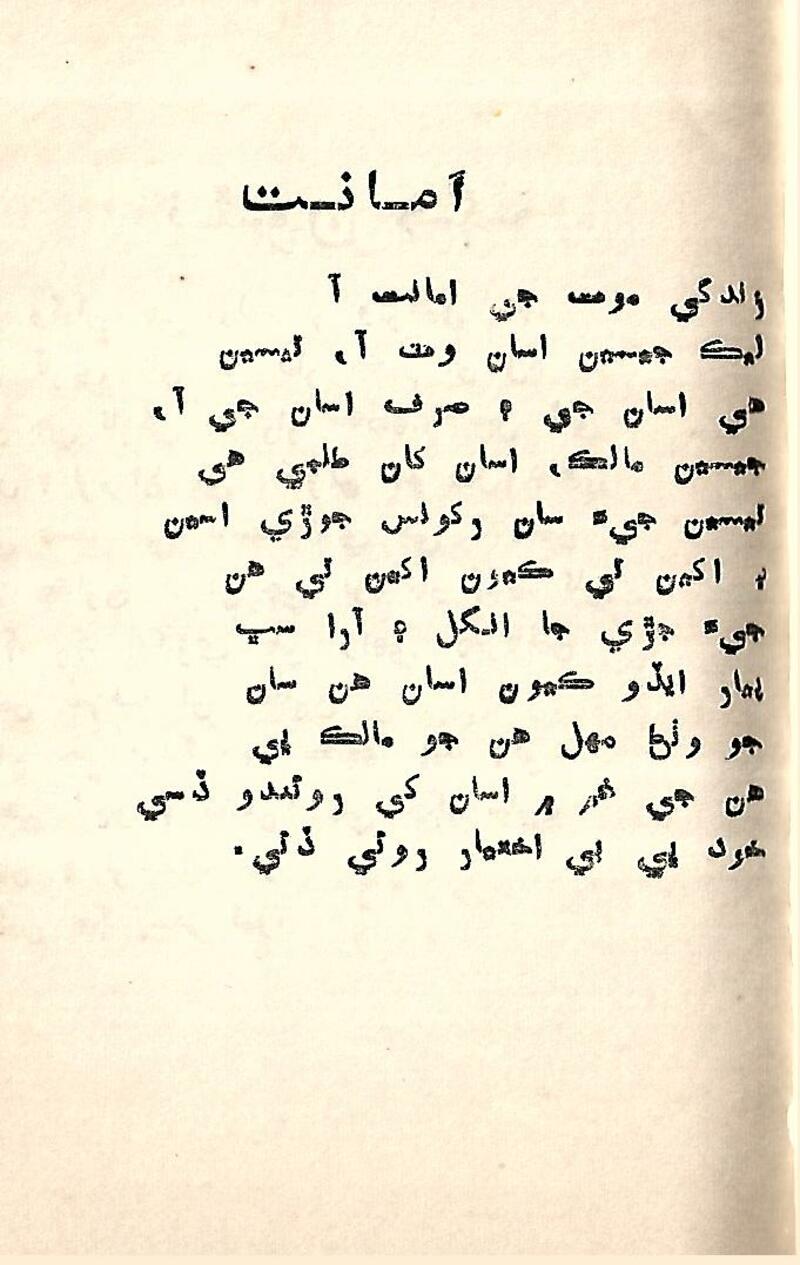 امانت
زندگي موت جي امانت آ
ليڪ جيسين اسان وٽ آ، تيسين
هي اسان جي ۽ صرف اسان جي آ،
جيسين مالڪ، اسان کان طلبي هي
تيسين جيءَ سان رکونس جوڙي اسين
۽ اکين تي ڪيون اکين تي هن
جيءَ جڙي جا انگل ۽ آرا سڀ
پيار ايڏو ڪيون اسان هن سان
جو وٺڻ مهل هن جو مالڪ ڀي
هن جي غم ۾ اسان کي روئندو ڏسي
خود ڀي بي اختيار روئي ڏئي.